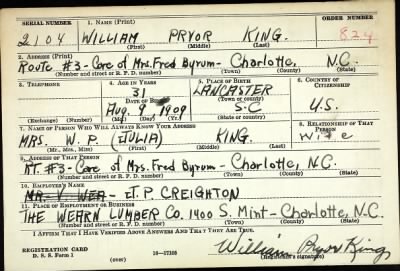 SERIAL NUMBER 1. NAME (Print) ORDER NUMBER
2104 WILLIAM PRYOR KING. 824
(First) (Middle) (Last)
2. ADDRESS (Print)
Route #3 - Care of Mrs. Fred Byrum - Charlotte, N.C.
(Number and street or R. F. D. number) (Town) (County) (State)
3. TELEPHONE 4. AGE IN YEARS 5. PLACE OF BIRTH 6. COUNTRY OF CITIZENSHIP
31 LANCASTER
DATE OF BIRTH (Town or county)
Aug. 9 1909 S-C U.S.
(Exchange) (Number) (Mo.) (Day) (Yr.) (State or country)
7. NAME OF PERSON WHO WILL ALWAYS KNOW YOUR ADDRESS 8. RELATIONSHIP OF THAT PERSON
MRS. W. P. (JULIA) KING. Wife
(Mr., Mrs., Miss) (First) (Middle) (Last)
9. ADDRESS OF THAT PERSON
RT. #3 - Care of Mrs. Fred Byrum - Charlotte, N.C.
(Number and street or R. F. D. number) (Town) (County) (State)
10. EMPLOYER'S NAME
J.P. CREIGHTON
11. PLACE OF EMPLOYMENT OR BUSINESS
THE WEARN LUMBER Co. 1400 S. Mint - Charlotte, N.C.
(Number and street or R. F. D. number) (Town) (County) (State)
I AFFIRM THAT I HAVE VERIFIED ABOVE ANSWERS AND THAT THEY ARE TRUE.
William Pryor King
REGISTRATION CARD
D. S. S. Form 1 (over) 16-17105 (Registrant's signature)